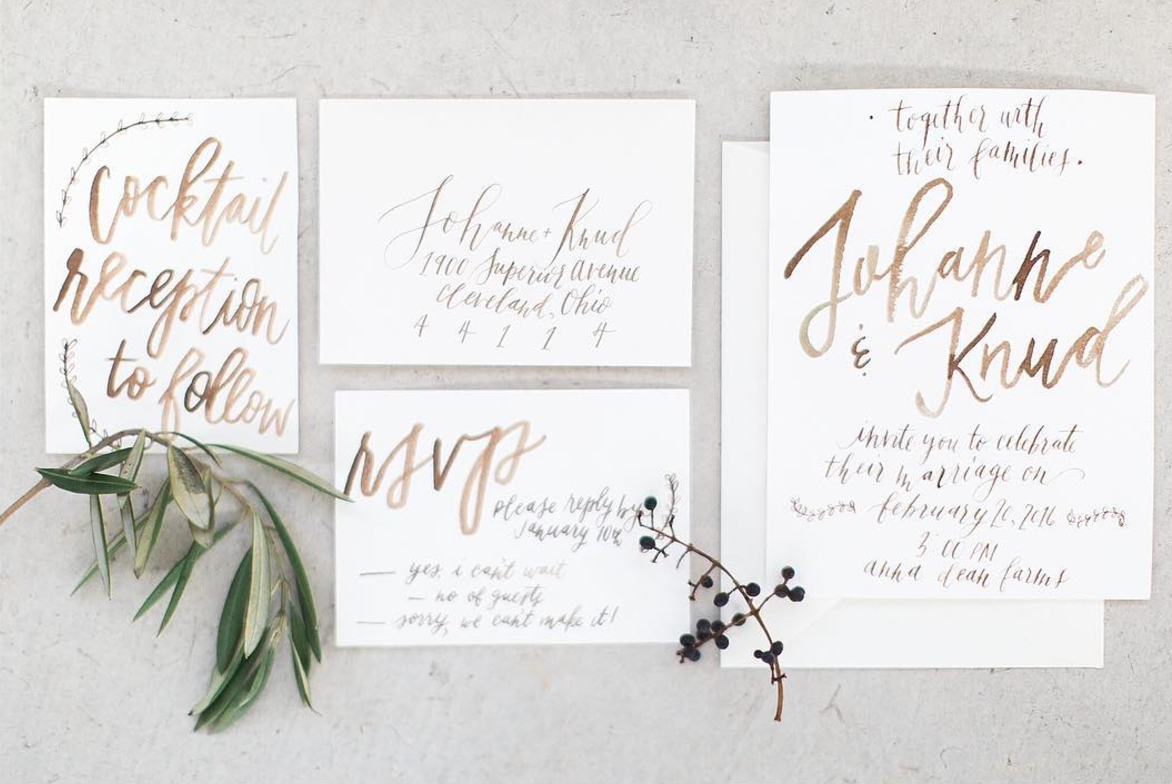 Cocktail
reception
to follow
Johanne + Knud
1900 Superior Avenue
Cleveland, Ohio
4 4 1 1 4
rsvp
please reply by
January 10th
yes, i can't wait
no of guests
sorry, we can't make it!
together with
their families.
Johanne
& Knud
invite you to celebrate
their marriage on
february 20, 2016
3:00 PM
anna dean farms